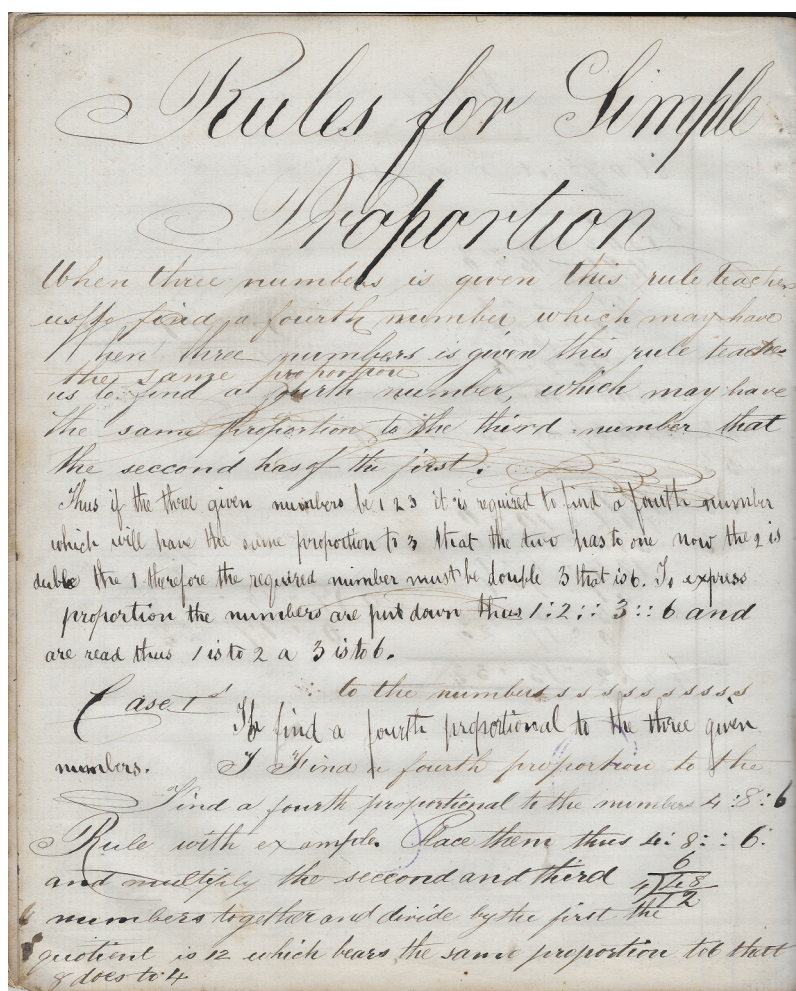 Rules for Simple
Proportion
When three numbers is given this rule teaches
us to find a fourth number which may have
hen three numbers is given this rule teaches
the same proportion
us to find a fourth number, which may have
the same proportion to the third number that
the seccond has of the first.
Thus if the three given numbers be 1 2 3 it is required to find a fourth number
which will have the same proportion to 3 that the two has to one now the 2 is
double the 1 therefore the required number must be double 3 that is 6. To express
proportion the numbers are put down thus 1 : 2 : : 3 : : 6 and
are read thus 1 is to 2 a 3 is to 6.
to the numbers s s s s s s s s
Case 1st To find a fourth proportional to the three given
numbers. I Find a fourth proportion to the
Find a fourth proportional to the numbers 4 : 8 : 6
Rule with example. Place them thus 4 : 8 : : 6 :
6
and multiply the seccond and third 4)48
numbers together and divide by the first the 12
quotient is 12 which bears the same proportion to 6 that
8 does to 4